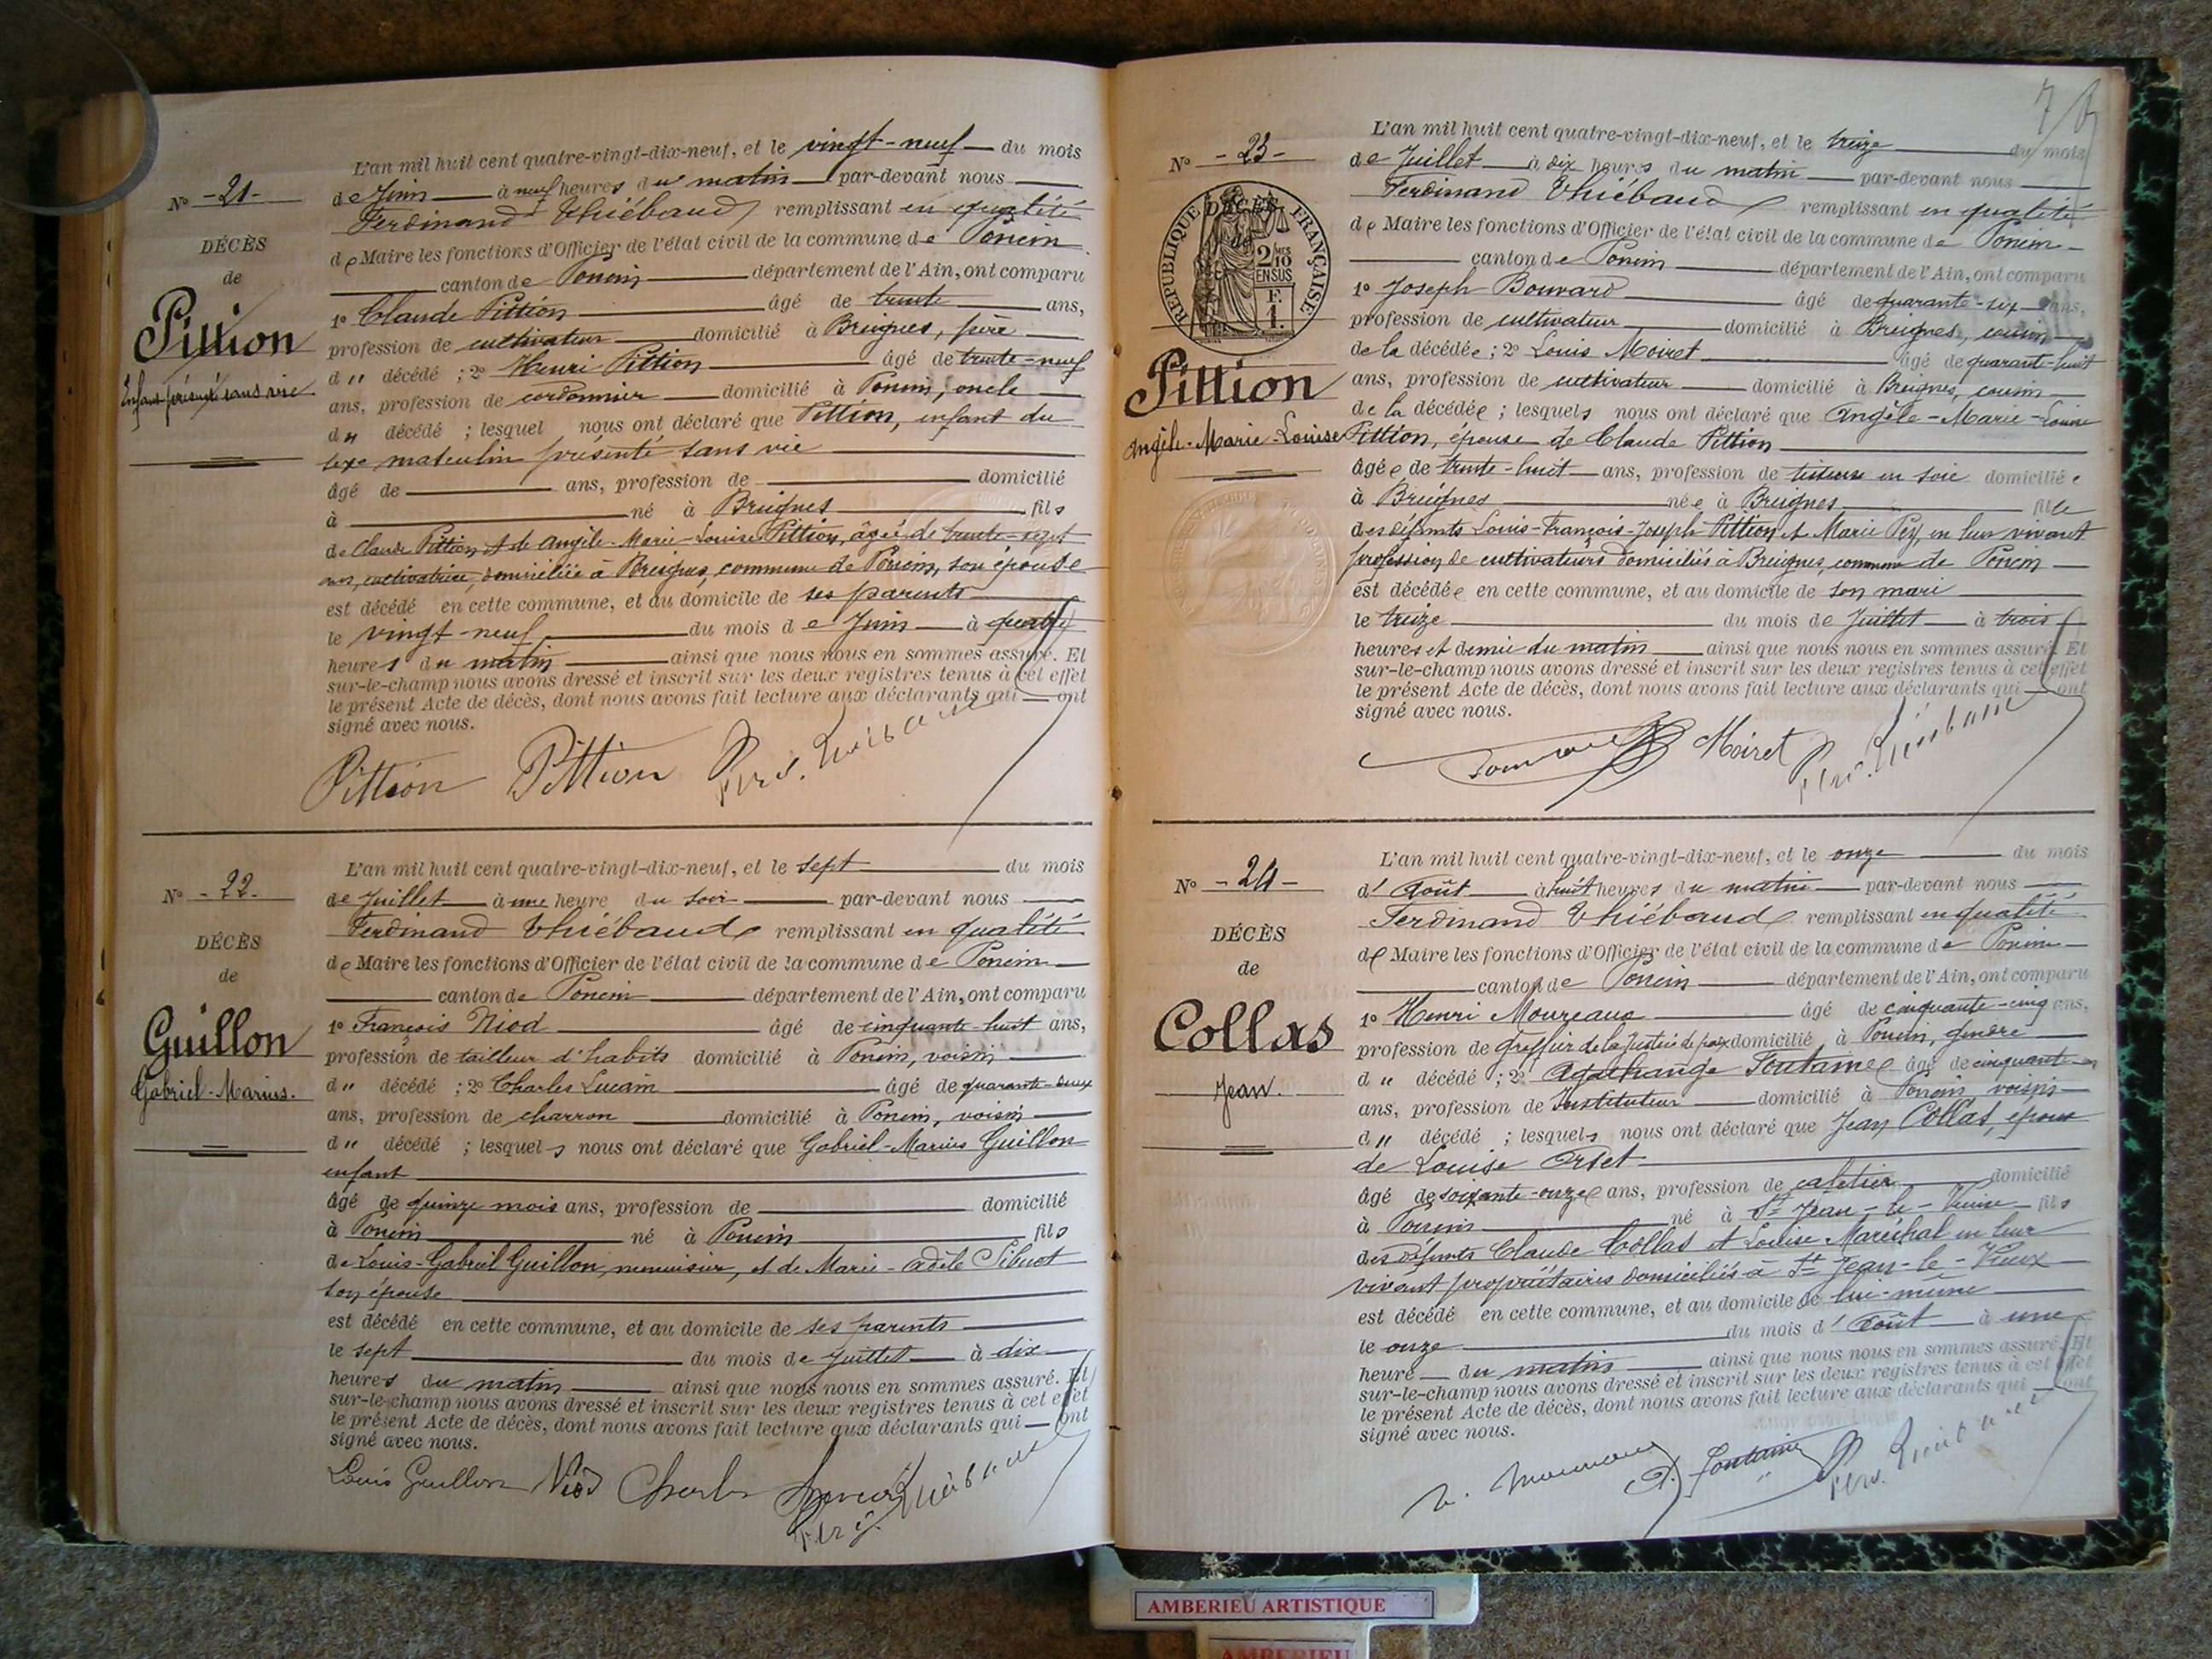 N° - 21 -
DÉCÈS
de
Pittion
Enfant présenté sans vie
L'an mil huit cent quatre-vingt-dix-neuf, et le vingt-neuf du mois
de Juin à neuf heures du matin par-devant nous
Ferdinand Thiébaud remplissant en qualité
de Maire les fonctions d'Officier de l'état civil de la commune de Poncin
canton de Poncin département de l'Ain, ont comparu
1° Claude Pittion âgé de trente ans,
profession de cultivateur domicilié à Breignes, père
d u décédé ; 2° Henri Pittion âgé de trente-neuf
ans, profession de cordonnier domicilié à Poncin, oncle
d u décédé ; lesquel nous ont déclaré que Pittion, enfant du
sexe masculin présenté sans vie
âgé de ans, profession de domicilié
à né à Breignes fils
de Claude Pittion et de Angèle-Marie-Louise Pittion, âgée de trente-sept
ans, cultivatrice, domiciliée à Breignes, commune de Poncin, son épouse
est décédé en cette commune, et au domicile de ses parents
le vingt-neuf du mois de Juin à quatre
heures du matin ainsi que nous nous en sommes assuré. Et
sur-le-champ nous avons dressé et inscrit sur les deux registres tenus à cet effet
le présent Acte de décès, dont nous avons fait lecture aux déclarants qui ont
signé avec nous.
Pittion Pittion Ferd. Thiébaud
N° - 22 -
DÉCÈS
de
Guillon
Gabriel-Marius.
L'an mil huit cent quatre-vingt-dix-neuf, et le sept du mois
de Juillet à une heure du soir par-devant nous
Ferdinand Thiébaud remplissant en qualité
de Maire les fonctions d'Officier de l'état civil de la commune de Poncin
canton de Poncin département de l'Ain, ont comparu
1° François Niod âgé de cinquante-huit ans,
profession de tailleur d'habits domicilié à Poncin, voisin
d u décédé ; 2° Charles Lucain âgé de quarante-deux
ans, profession de charron domicilié à Poncin, voisin
d u décédé ; lesquels nous ont déclaré que Gabriel-Marius Guillon
enfant
âgé de quinze mois ans, profession de domicilié
à Poncin né à Poncin fils
de Louis-Gabriel Guillon, menuisier, et de Marie-Adèle Sibuet
son épouse
est décédé en cette commune, et au domicile de ses parents
le sept du mois de Juillet à dix
heures du matin ainsi que nous nous en sommes assuré. Et
sur-le-champ nous avons dressé et inscrit sur les deux registres tenus à cet effet
le présent Acte de décès, dont nous avons fait lecture aux déclarants qui ont
signé avec nous.
Louis Guillon Niod Charles Ferd. Thiébaud
7
N° - 23 -
RÉPUBLIQUE FRANÇAISE
DÉCÈS
de
2/10 EN SUS
F.
1.
Pittion
Angèle-Marie-Louise
L'an mil huit cent quatre-vingt-dix-neuf, et le treize du mois
de Juillet à dix heures du matin par-devant nous
Ferdinand Thiébaud remplissant en qualité
de Maire les fonctions d'Officier de l'état civil de la commune de Poncin
canton de Poncin département de l'Ain, ont comparu
1° Joseph Bouvard âgé de quarante-six ans,
profession de cultivateur domicilié à Breignes, cousin
de la décédée ; 2° Louis Moiret âgé de quarante-huit
ans, profession de cultivateur domicilié à Breignes, cousin
de la décédée ; lesquels nous ont déclaré que Angèle-Marie-Louise
Pittion, épouse de Claude Pittion
âgée de trente-huit ans, profession de tisseuse en soie domiciliée
à Breignes née à Breignes fille
des défunts Louis-François-Joseph Pittion et Marie Pey, en leur vivant
profession de cultivateurs domiciliés à Breignes, commune de Poncin
est décédée en cette commune, et au domicile de son mari
le treize du mois de Juillet à trois
heures et demie du matin ainsi que nous nous en sommes assuré. Et
sur-le-champ nous avons dressé et inscrit sur les deux registres tenus à cet effet
le présent Acte de décès, dont nous avons fait lecture aux déclarants qui ont
signé avec nous.
Bouvard Moiret Ferd. Thiébaud
N° - 24 -
DÉCÈS
de
Collas
Jean.
L'an mil huit cent quatre-vingt-dix-neuf, et le onze du mois
d'Août à huit heures du matin par-devant nous
Ferdinand Thiébaud remplissant en qualité
de Maire les fonctions d'Officier de l'état civil de la commune de Poncin
canton de Poncin département de l'Ain, ont comparu
1° Henri Moureaux âgé de cinquante-cinq ans,
profession de Greffier de la Justice de paix domicilié à Poncin, gendre
d u décédé ; 2° Agathange Fontaine âgé de cinquante-
ans, profession de Instituteur domicilié à Poncin voisin
d u décédé ; lesquels nous ont déclaré que Jean Collas, époux
de Louise Orset
âgé de soixante-onze ans, profession de cafetier domicilié
à Poncin né à St-Jean-le-Vieux fils
des défunts Claude Collas et Louise Maréchal en leur
vivant propriétaires domiciliés à St-Jean-le-Vieux
est décédé en cette commune, et au domicile de lui-même
le onze du mois d'Août à une
heure du matin ainsi que nous nous en sommes assuré. Et
sur-le-champ nous avons dressé et inscrit sur les deux registres tenus à cet effet
le présent Acte de décès, dont nous avons fait lecture aux déclarants qui ont
signé avec nous.
h. Moureaux A. Fontaine Ferd. Thiébaud
AMBERIEU ARTISTIQUE
AMBERIEU